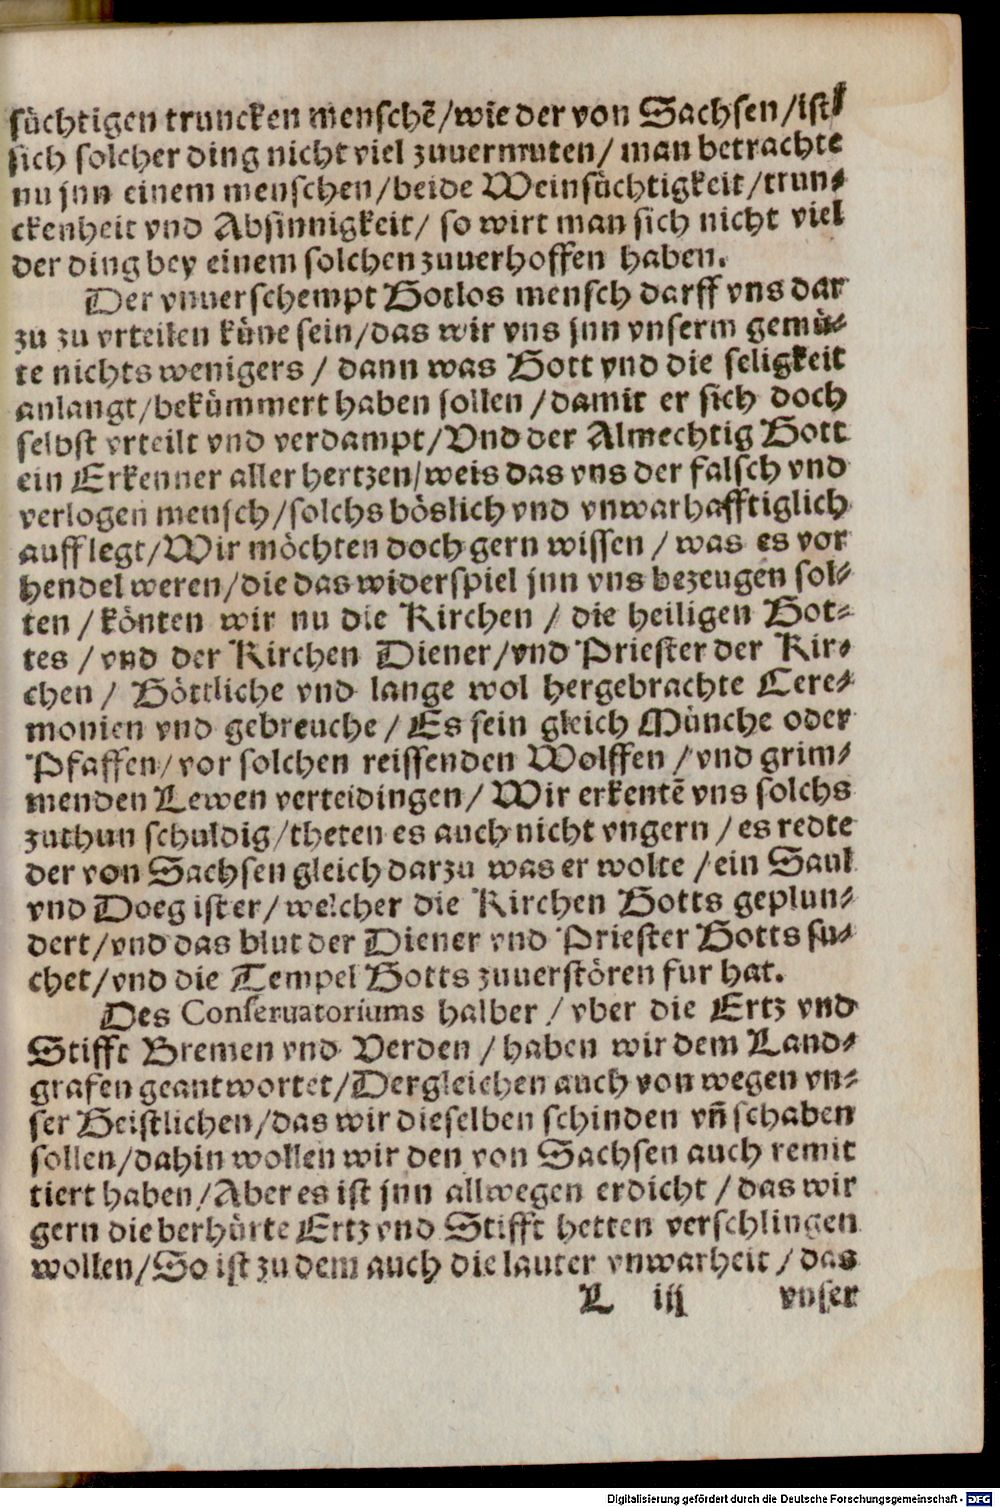 süchtigen truncken menschē/wie der von Sachsen/ist
sich solcher ding nicht viel zuuermuten/ man betrachte
nu jnn einem menschen/beide Weinsüchtigkeit/trun-
ckenheit vnd Absinnigkeit/ so wirt man sich nicht viel
der ding bey einem solchen zuuerhoffen haben.
Der vnuerschempt Gotlos mensch darff vns dar
zu zu vrteilen küne sein/das wir vns jnn vnserm gemü-
te nichts wenigers / dann was Gott vnd die seligkeit
anlangt/bekümmert haben sollen /damit er sich doch
selbst vrteilt vnd verdampt/Vnd der Almechtig Gott
ein Erkenner aller hertzen/weis das vns der falsch vnd
verlogen mensch/solchs böslich vnd vnwarhafftiglich
aufflegt/Wir möchten doch gern wissen / was es vor
hendel weren/die das widerspiel jnn vns bezeugen sol-
ten / könten wir nu die Kirchen / die heiligen Got-
tes / vnd der Kirchen Diener/vnd Priester der Kir-
chen / Göttliche vnd lange wol hergebrachte Cere-
monien vnd gebreuche / Es sein gleich Münche oder
Pfaffen/vor solchen reissenden Wolffen /vnd grim-
menden Lewen verteidingen/ Wir erkentē vns solchs
zuthun schuldig/theten es auch nicht vngern /es redte
der von Sachsen gleich darzu was er wolte /ein Saul
vnd Doeg ist er/ welcher die Kirchen Gotts geplun-
dert/vnd das blut der Diener vnd Priester Gotts su-
chet/vnd die Tempel Gotts zuuerstören fur hat.
Des Conseruatoriums halber / vber die Ertz vnd
Stifft Bremen vnd Verden / haben wir dem Land-
grafen geantwortet/Dergleichen auch von wegen vn-
ser Geistlichen/das wir dieselben schinden vn̄ schaben
sollen/dahin wollen wir den von Sachsen auch remit
tiert haben/Aber es ist jnn allwegen erdicht /das wir
gern die berhürte Ertz vnd Stifft hetten verschlingen
wollen/So ist zu dem auch die lauter vnwarheit / das
L iij vnser
Digitalisierung gefördert durch die Deutsche Forschungsgemeinschaft - DFG